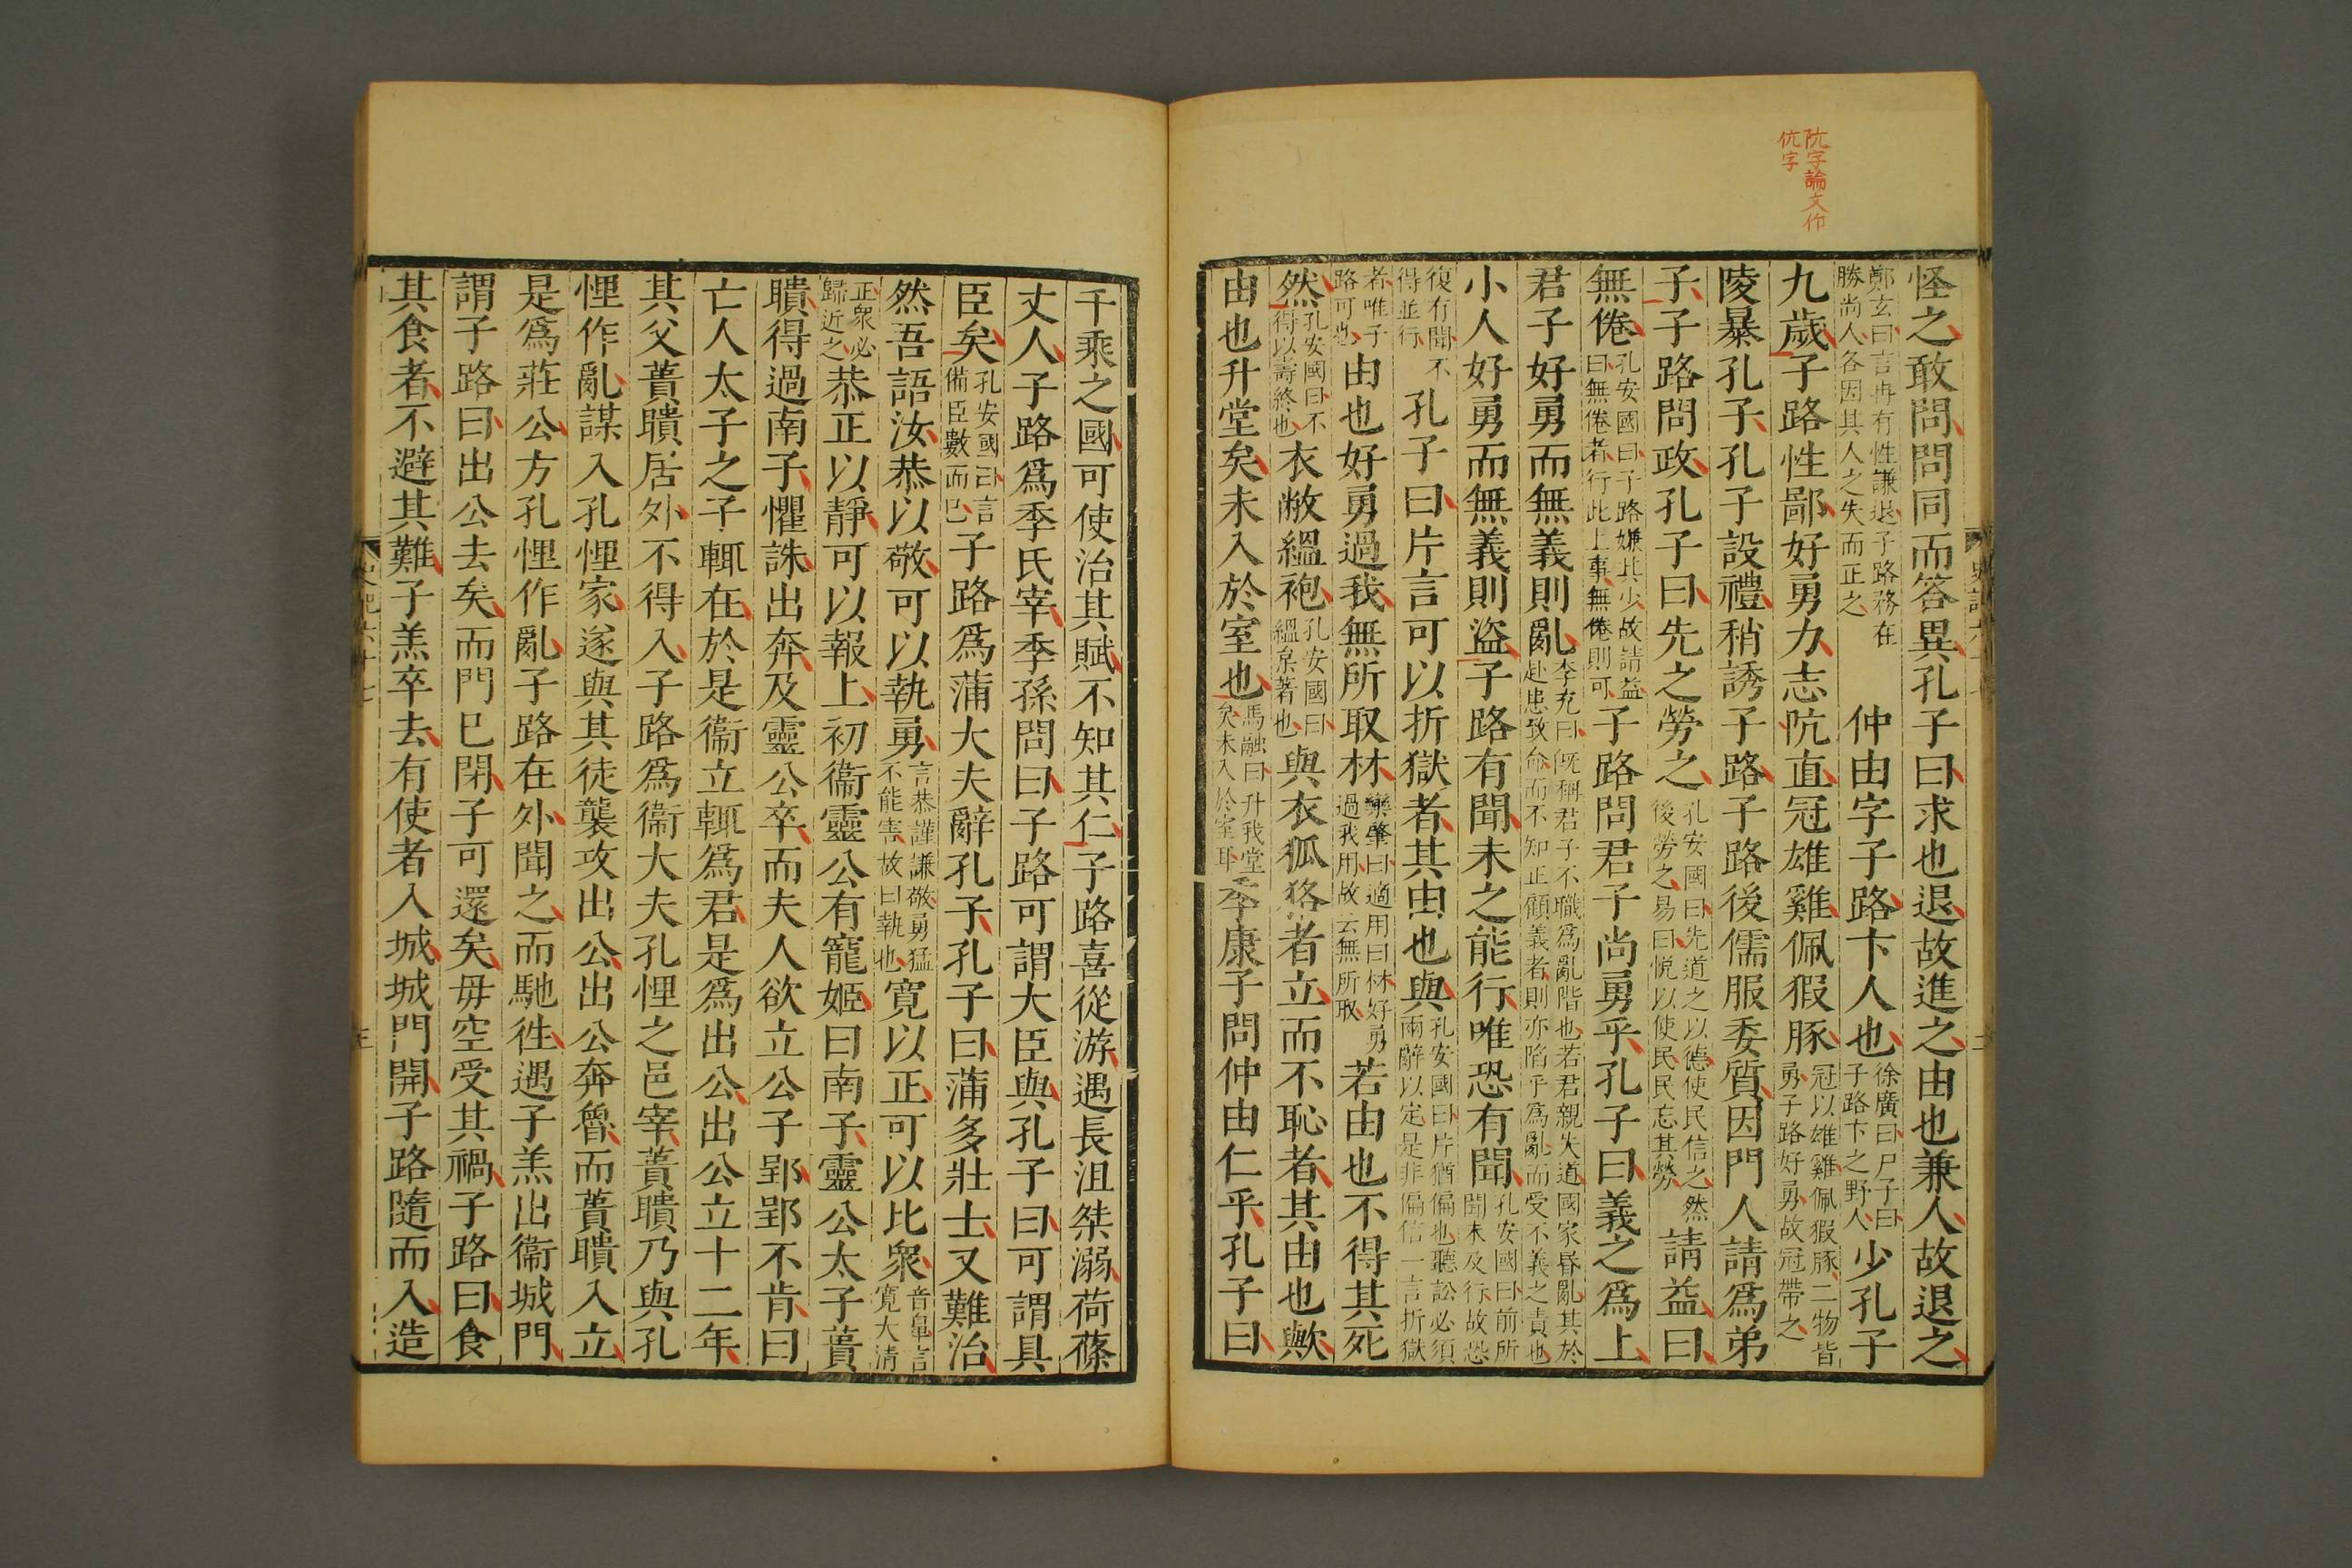 阬字論文作
伉字
怪之敢問問同而答異孔子曰求也退故進之由也兼人故退之
鄭玄曰言冉有性謙退子路務在勝尚人各因其人之失而正之 仲由字子路卞人也徐廣曰尸子曰子路卞之野人少孔子
九歲子路性鄙好勇力志阬直冠雄雞佩猳豚冠以雄雞佩猳豚二物皆勇子路好勇故冠帶之
陵暴孔子孔子設禮稍誘子路子路後儒服委質因門人請爲弟
子子路問政孔子曰先之勞之孔安國曰先道之以德使民信之然後勞之易曰悅以使民民忘其勞請益曰
無倦孔安國曰子路嫌其少故請益曰無倦者行此上事無倦則可子路問君子尚勇乎孔子曰義之爲上
君子好勇而無義則亂李充曰既稱君子不職爲亂階也若君親失道國家昏亂其於赴患致命而不知正顧義者則亦陷乎爲亂而受不義之責也
小人好勇而無義則盜子路有聞未之能行唯恐有聞孔安國曰前所聞未及行故恐
復有聞不得並行孔子曰片言可以折獄者其由也與孔安國曰片猶偏也聽訟必須兩辭以定是非偏信一言折獄
者唯子路可也由也好勇過我無所取材欒肇曰適用曰材好勇過我用故云無所取若由也不得其死
然孔安國曰不得以壽終也衣敝縕袍孔安國曰縕枲著也與衣狐狢者立而不恥者其由也歟
由也升堂矣未入於室也馬融曰升我堂矣未入於室耳季康子問仲由仁乎孔子曰
千乘之國可使治其賦不知其仁子路喜從游遇長沮桀溺荷蓧
丈人子路爲季氏宰季孫問曰子路可謂大臣與孔子曰可謂具
臣矣孔安國曰言備臣數而已子路爲蒲大夫辭孔子孔子曰蒲多壯士又難治
然吾語汝恭以敬可以執勇言恭謹謙敬勇猛不能害故曰執也寬以正可以比衆音鼻言寬大清
正衆必歸近之恭正以靜可以報上初衞靈公有寵姬曰南子靈公太子蕢
聵得過南子懼誅出奔及靈公卒而夫人欲立公子郢郢不肯曰
亡人太子之子輒在於是衞立輒爲君是爲出公出公立十二年
其父蕢聵居外不得入子路爲衞大夫孔悝之邑宰蕢聵乃與孔
悝作亂謀入孔悝家遂與其徒襲攻出公出公奔魯而蕢聵入立
是爲莊公方孔悝作亂子路在外聞之而馳徃遇子羔出衞城門
謂子路曰出公去矣而門巳閉子可還矣毋空受其禍子路曰食
其食者不避其難子羔卒去有使者入城城門開子路隨而入造